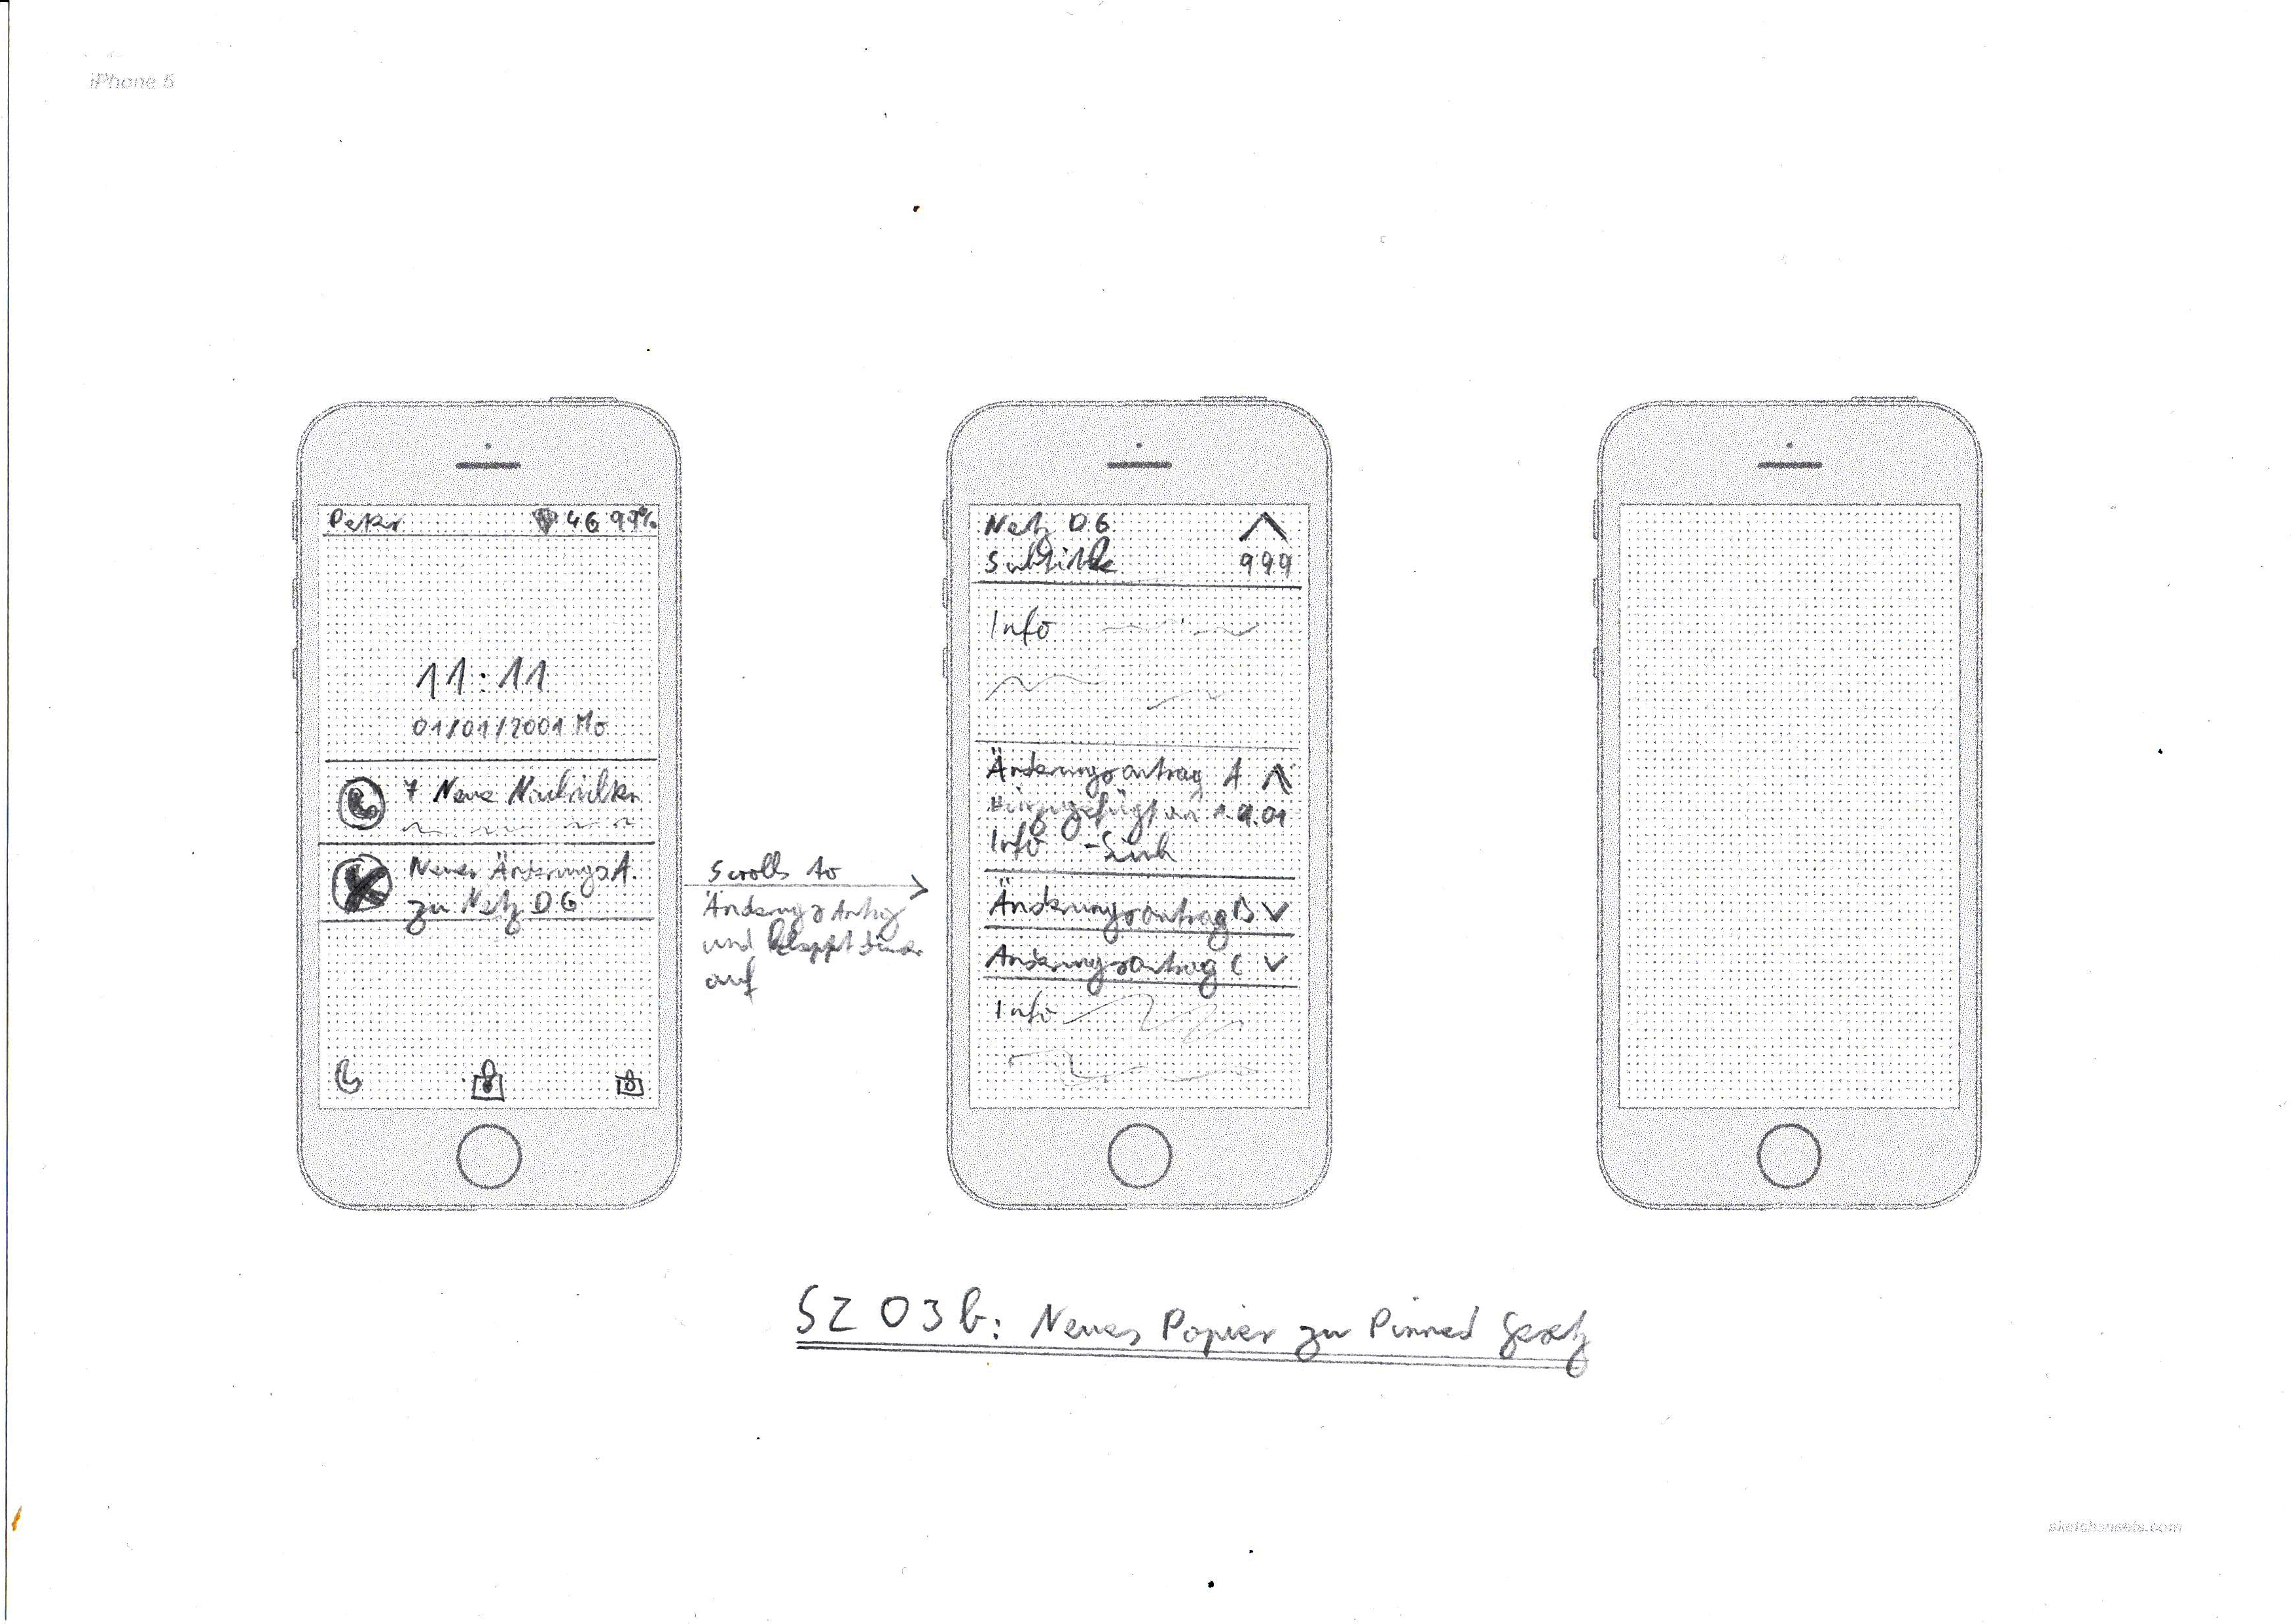 iPhone 5
Peter 4G 99%
11:11
01/01/2001 Mo
7 Neue Nachrichten
Neuer Änderungsa.
zu Netz DG
Scrolls to
Änderungsantrag
und klappt diesen
auf
Netz DG
Subtitle 999
Info
Änderungsantrag A
Hinzugefügt am 1.9.01
Info
Änderungsantrag B
Änderungsantrag C
Info
SZ 03b: Neues Papier zu Pinned Gesetz
sketchsheets.com